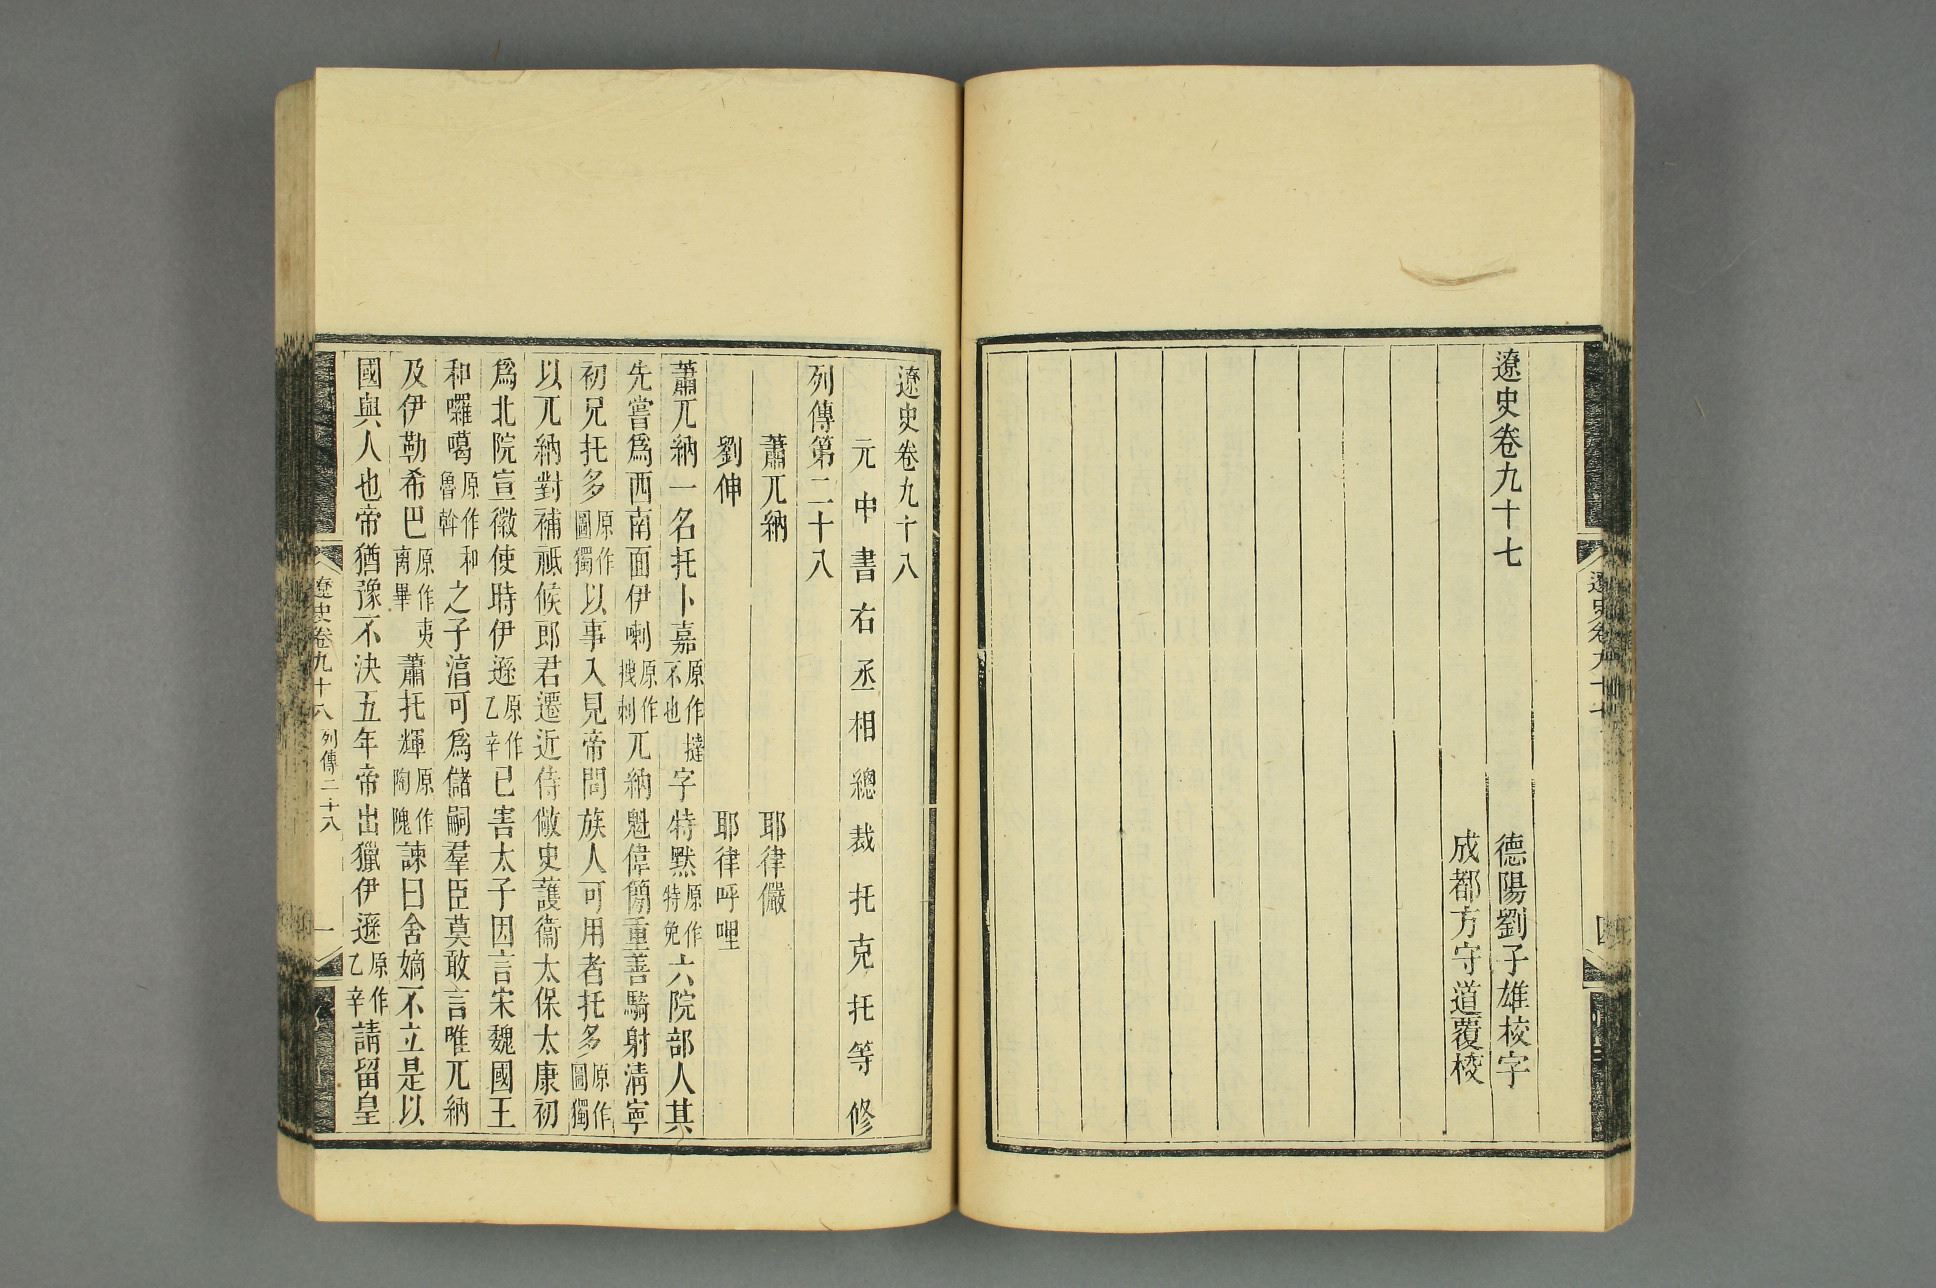 遼史卷九十七
四
遼史卷九十七
德陽劉子雄校字
成都方守道覆校
遼史卷九十八
元中書右丞相總裁托克托等修
列傳第二十八
蕭兀納
耶律儼
劉伸
耶律呼哩
蕭兀納一名托卜嘉原作撻不也字特默原作特免六院部人其
先嘗爲西南面伊喇原作拽剌兀納魁偉簡重善騎射淸寧
初兄托多原作圖獨以事入見帝問族人可用者托多原作圖獨
以兀納對補祗候郎君遷近侍敞史護衞太保太康初
爲北院宣徽使時伊遜原作乙辛已害太子因言宋魏國王
和囉噶原作和魯斡之子湻可爲儲嗣羣臣莫敢言唯兀納
及伊勒希巴原作夷离畢蕭托輝原作陶隗諫曰舍嫡不立是以
國與人也帝猶豫不決五年帝出獵伊遜原作乙辛請留皇
遼史卷九十八
列傳二十八
一